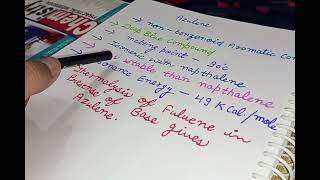 Azulene
→ non-benzenoid Aromatic Co
→ Deep Blue Compound
→ melting point - 90°
Isomeric with napthalene
stable than napthalene
onance Energy - 49 KCal/mole
Thermalysis of Fulvene in
Presence of Base gives
Azulene.